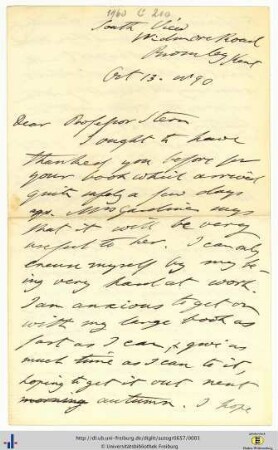 1960 C 210
South View
Widmore Road
Bromley Kent
Oct 13. 1890
Dear Professor Stern
I ought to have
thanked you before for
your book which arrived
quite safely a few days
ago. Mrs says
that it will be very
useful to her. I can only
excuse myself by my be-
ing very hard at work.
I am anxious to get on
with my large book as
fast as I can, & give as
much time as I can to it,
hoping to get it out next
morning autumn. I hope
http://dl.ub.uni-freiburg.de/diglit/autogr0657/0001
© Universitätsbibliothek Freiburg